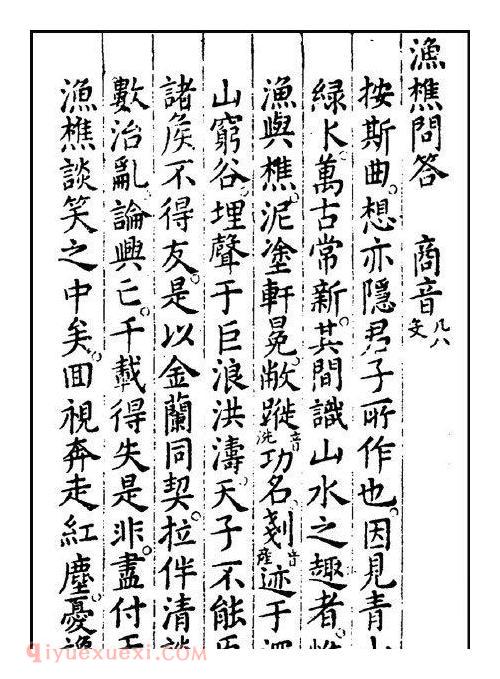 漁樵問答 商音 凡八
按斯曲。想亦隱君子所作也。因見青山
綠水。萬古常新。其間識山水之趣者。惟
漁與樵。泥塗軒冕。敝蹝音洗功名。剗音產迹于
山窮谷。埋聲于巨浪洪濤。天子不能臣
諸矦不得友。是以金蘭同契。拉伴清談
數治亂論興亡。千載得失是非。盡付
漁樵談笑之中矣。囬視奔走紅塵。憂
qiyuexuexi.COM